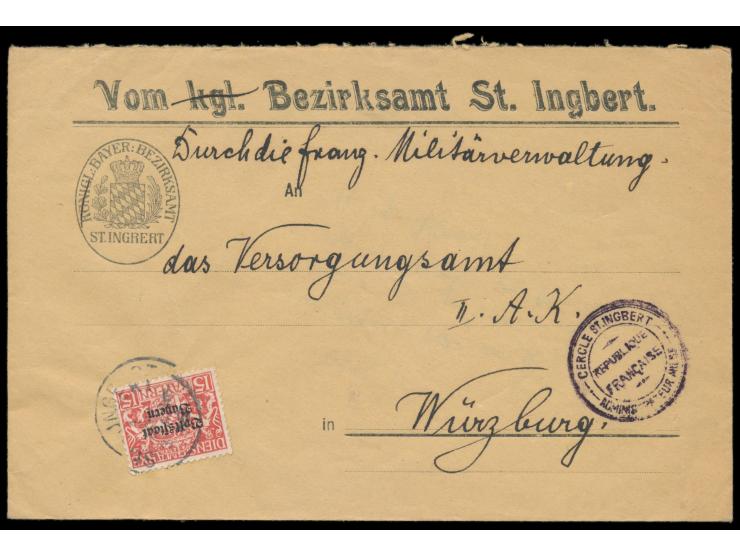 Vom kgl. Bezirksamt St. Ingbert.
Durch die franz. Militärverwaltung.
An
KÖNIGL: BAYER: BEZIRKSAMT
ST. INGBERT
das Versorgungsamt
II. A. K.
CERCLE ST. INGBERT
REPUBLIQUE
FRANÇAISE
in Würzburg.
15
15
Volksstaat
Bayern